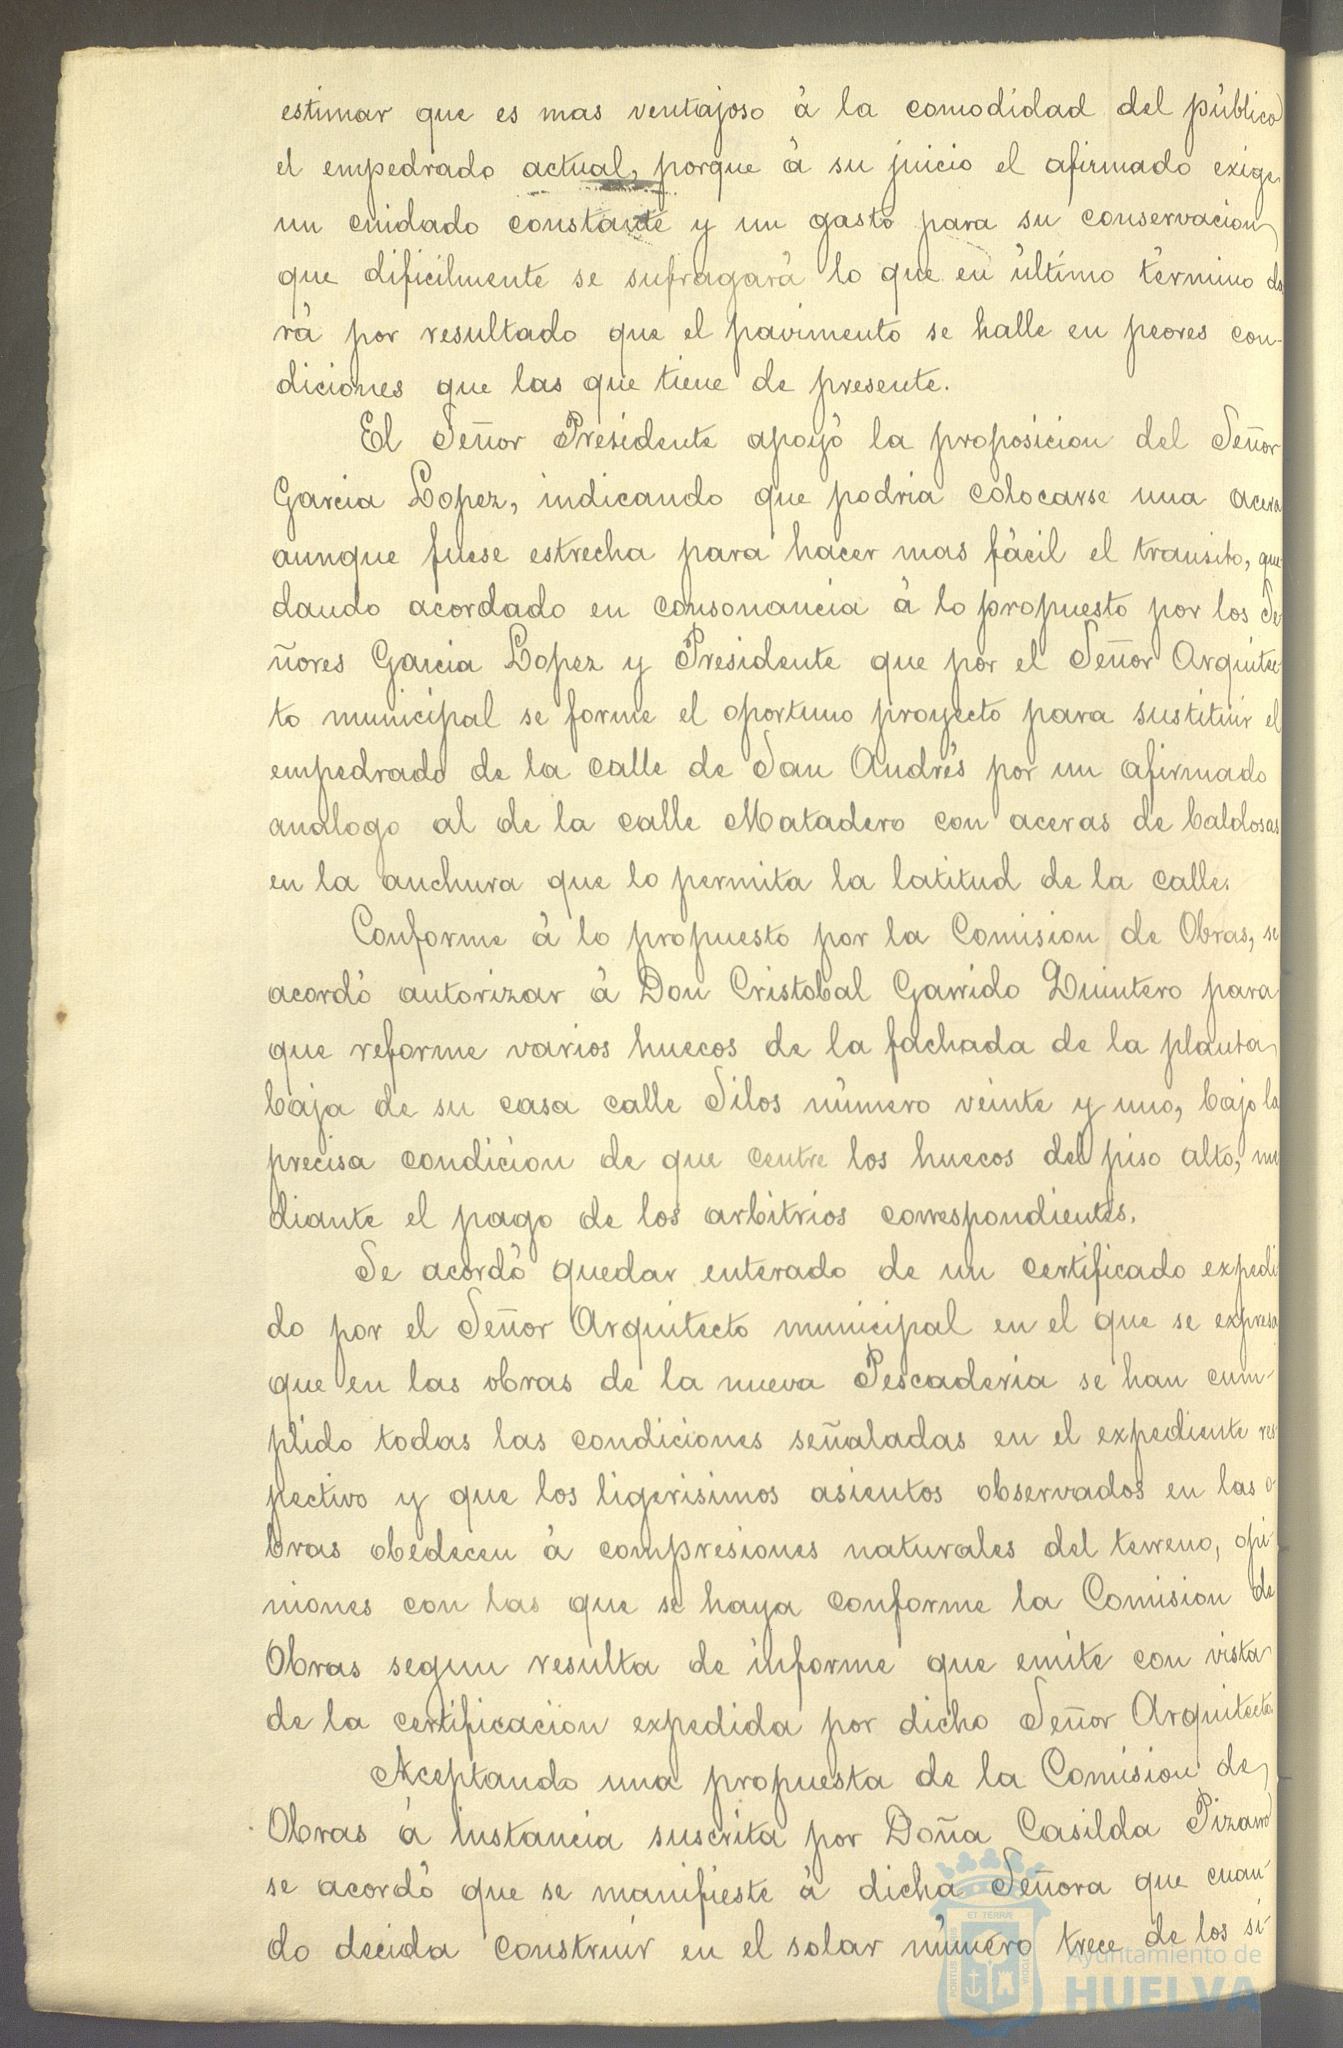 estimar que es mas ventajoso à la comodidad del pùblico
el empedrado actual, porque à su juicio el afirmado exige
un cuidado constante y un gasto para su conservacion
que dificilmente se sufragarà lo que en ùltimo tèrmino da
rà por resultado que el pavimento se halle en peores con-
diciones que las que tiene de presente.
El Señor Presidente apoyò la proposicion del Señor
Garcia Lopez, indicando que podria colocarse una acera
aunque fuese estrecha para hacer mas fàcil el transito, que
dando acordado en consonancia à lo propuesto por los Se
ñores Garcia Lopez y Presidente que por el Señor Arquitec
to municipal se forme el oportuno proyecto para sustituir el
empedrado de la calle de San Andrès por un afirmado
analogo al de la calle Matadero con aceras de baldosas
en la anchura que lo permita la latitud de la calle.
Conforme à lo propuesto por la Comision de Obras, se
acordò autorizar à Don Cristobal Garrido Quintero para
que reforme varios huecos de la fachada de la planta
baja de su casa calle Silos nùmero veinte y uno, bajo la
precisa condicion de que centre los huecos del piso alto, me
diante el pago de los arbitrios correspondientes.
Se acordò quedar enterado de un certificado expedi
do por el Señor Arquitecto municipal en el que se expresa
que en las obras de la nueva Pescaderia se han cum-
plido todas las condiciones señaladas en el expediente res
pectivo y que los ligerisimos asientos observados en las o
bras obedecen à compresiones naturales del terreno, opi-
niones con las que se haya conforme la Comision de
Obras segun resulta de informe que emite con vista
de la certificacion expedida por dicho Señor Arquitecto.
Aceptando una propuesta de la Comision de
Obras à instancia suscrita por Doña Casilda Pizarro
se acordò que se manifieste à dicha Señora que cuan-
do decida construir en el solar nùmero trece de los si-
ET TERRÆ
PORTUS
CUSTODIA
Ayuntamiento de
HUELVA